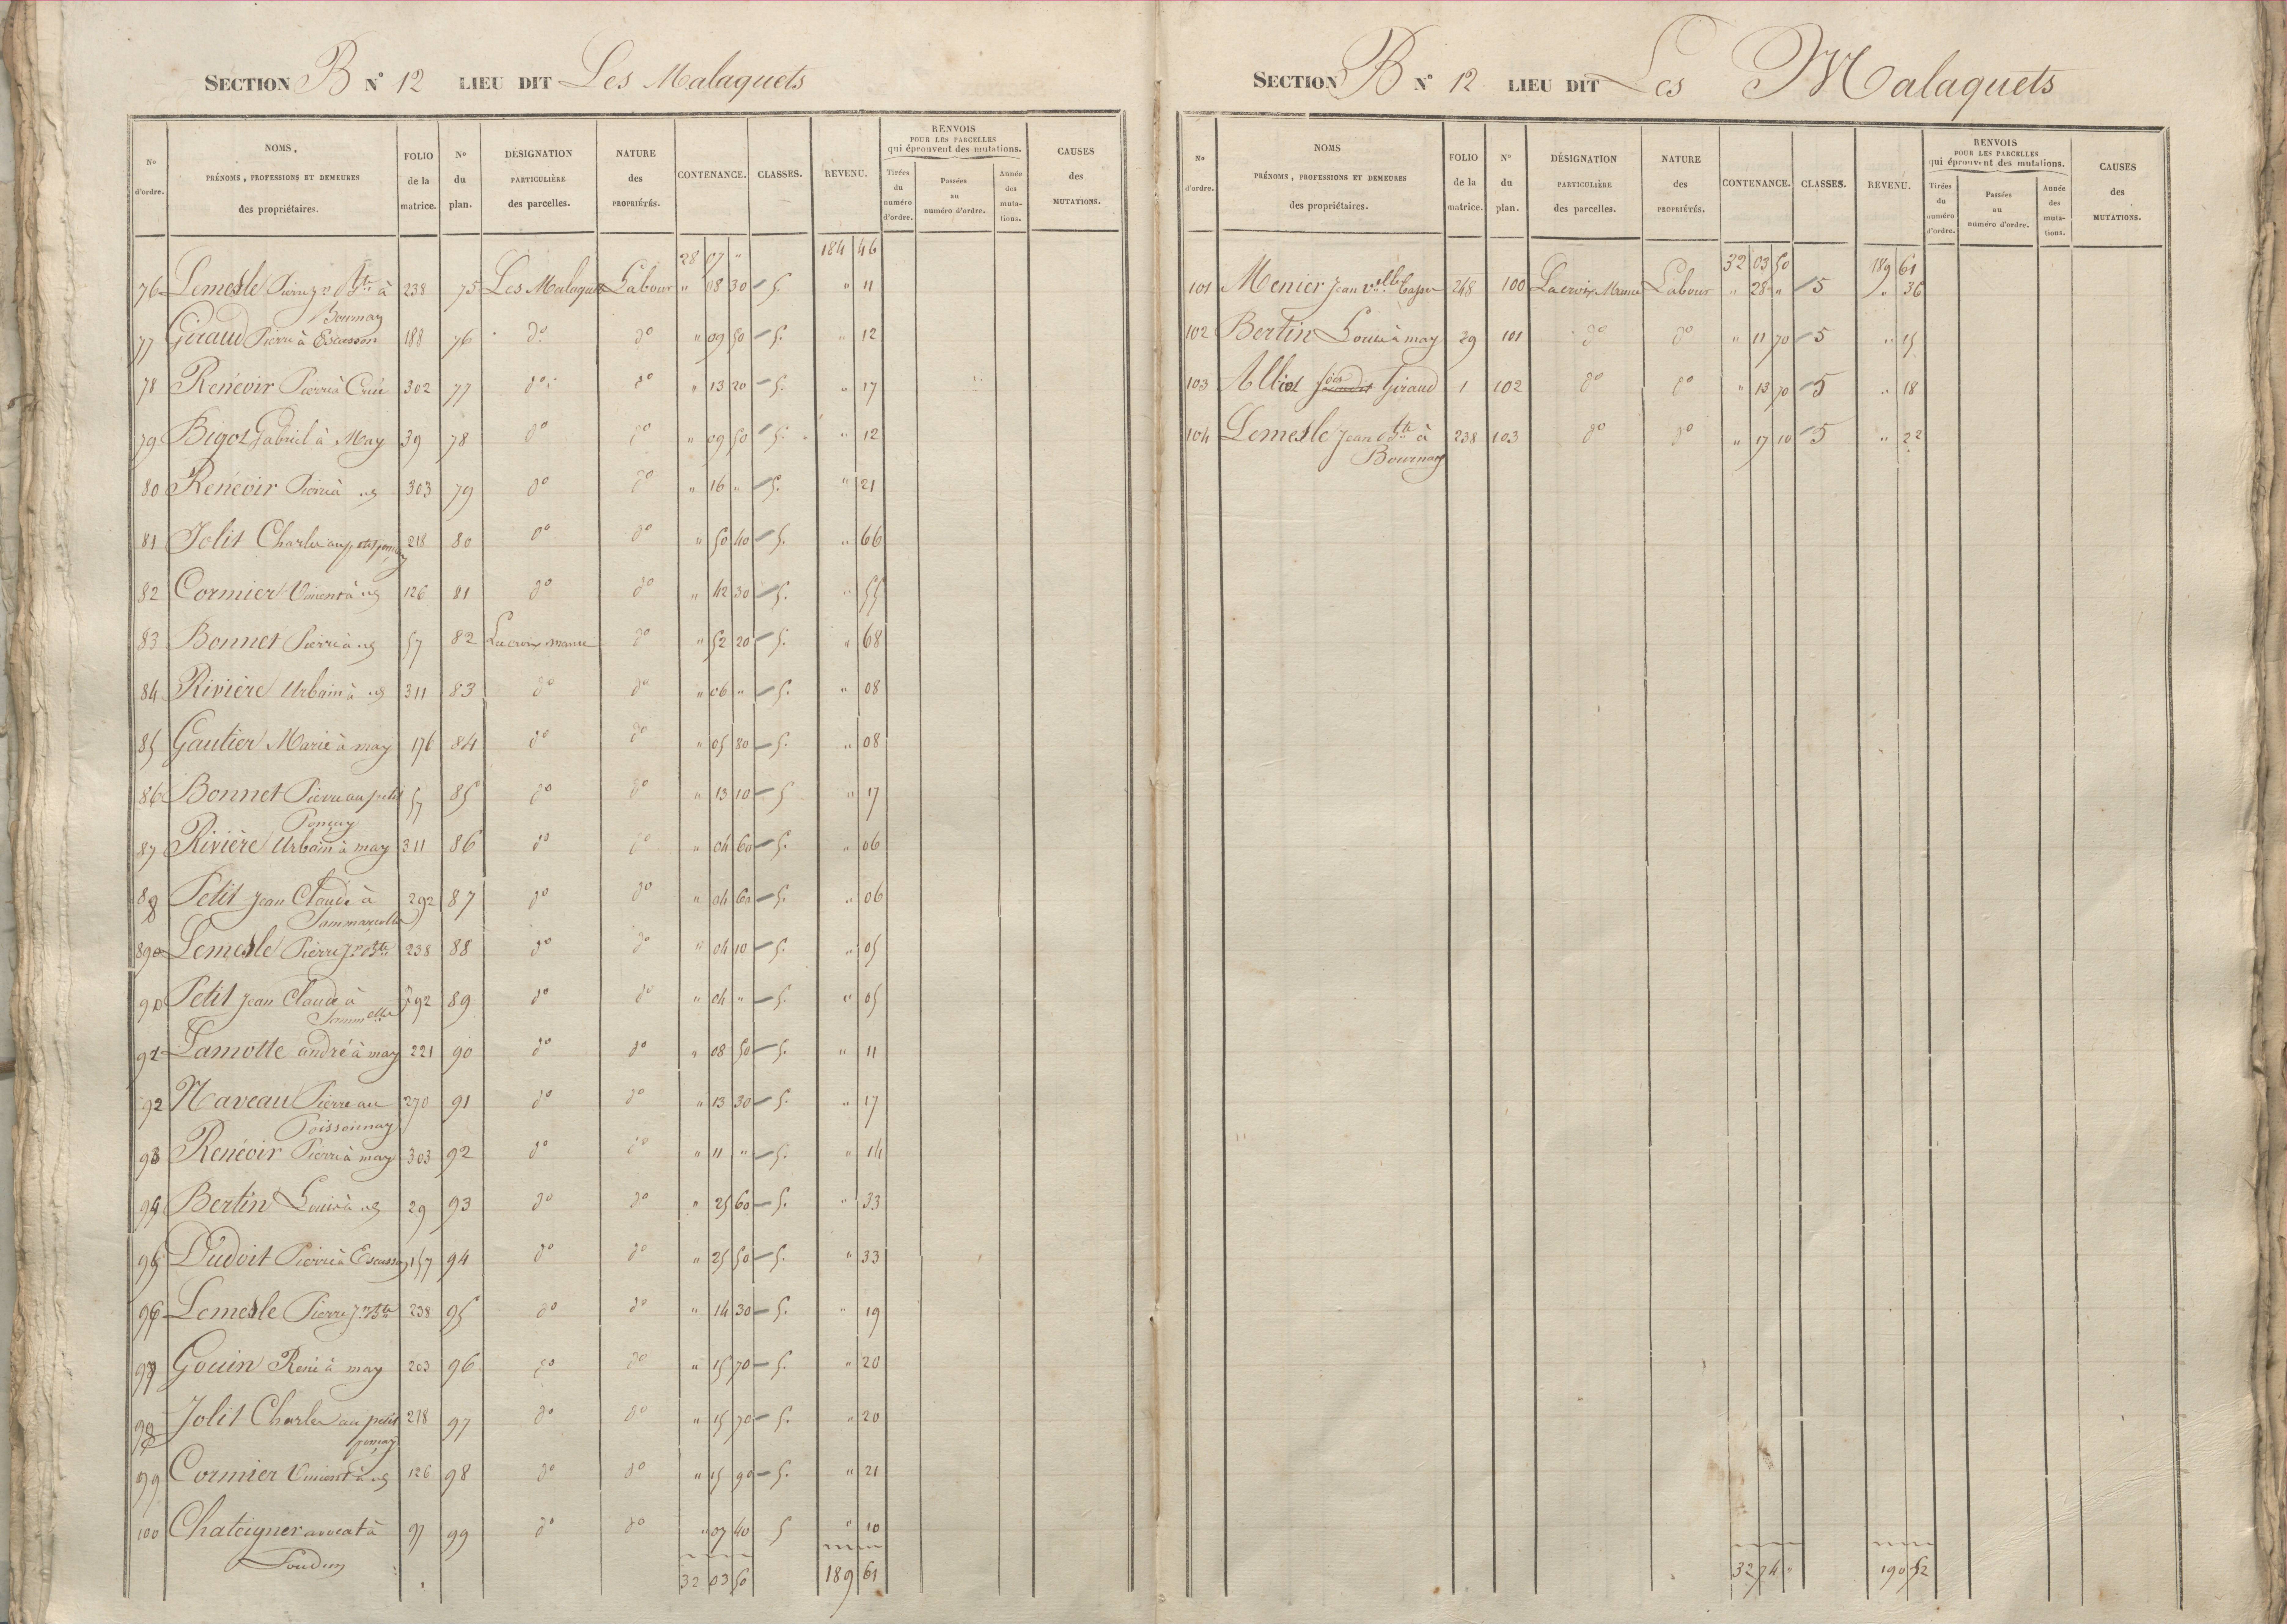 SECTION B N° 12 LIEU DIT Les Malaquets
N° d'ordre. NOMS, PRÉNOMS, PROFESSIONS ET DEMEURES des propriétaires. FOLIO de la matrice. N° du plan. DÉSIGNATION PARTICULIÈRE des parcelles. NATURE des PROPRIÉTÉS. CONTENANCE. CLASSES. REVENU. RENVOIS POUR LES PARCELLES qui éprouvent des mutations. Tirées du numéro d'ordre. Passées au numéro d'ordre. Année des mutations. CAUSES des MUTATIONS.
28 07 " 184 46
76 Lemesle Pierre Jn Bte à 238 75 Les Malaquets Labour " 08 30 5. " 11
Bournay
77 Giraud Pierre à Escusson 188 76 do do " 09 50 5. " 12
78 Renevoir Pierre à Crué 302 77 do do " 13 20 5. " 17
79 Bigot Gabriel à May 39 78 do do " 09 50 5. " 12
80 Renevoir Pierre à 303 79 do do " 16 " 5. " 21
81 Jolit Charles au petit ponçay 218 80 do do " 50 40 5. " 66
82 Cormier Vincent à 126 81 do do " 42 30 5. " 55
83 Bonnet Pierre à 57 82 Lacroix manue do " 52 20 5. " 68
84 Rivière Urbain à 311 83 do do " 06 " 5. " 08
85 Gautier Marie à may 176 84 do do " 05 80 5. " 08
86 Bonnet Pierre au petit 57 85 do do " 13 10 5 " 17
Ponçay
87 Rivière Urbain à may 311 86 do do " 04 60 5. " 06
88 Petit Jean Claude à 292 87 do do " 04 60 5. " 06
Sammarcolle
89 Lemesle Pierre Jn Bte 238 88 do do " 04 10 5. " 05
90 Petit Jean Claude à 292 89 do do " 04 " 5. " 05
Sammelle
91 Lamotte andré à may 221 90 do do " 08 50 5. " 11
92 Naveau Pierre au 270 91 do do " 13 30 5. " 17
Poissonnay
93 Renevoir Pierre à may 303 92 do do " 11 " 5. " 14
94 Bertin Louis à 29 93 do do " 25 60 5. " 33
95 Dudoit Pierre à Escusson 157 94 do do " 25 50 5. " 33
96 Lemesle Pierre Jn Bte 238 95 do do " 14 30 5. " 19
97 Gouin René à may 203 96 do do " 15 70 5. " 20
98 Jolit Charles au petit 218 97 do do " 15 70 5. " 20
ponçay
99 Cormier Vincent à 126 98 do do " 15 90 5. " 21
100 Chateigner avocat à 97 99 do do " 07 40 5 " 10
Loudun
32 03 50 189 61
SECTION B N° 12 LIEU DIT Les Malaquets
N° d'ordre. NOMS PRÉNOMS, PROFESSIONS ET DEMEURES des propriétaires. FOLIO de la matrice. N° du plan. DÉSIGNATION PARTICULIÈRE des parcelles. NATURE des PROPRIÉTÉS. CONTENANCE. CLASSES. REVENU. RENVOIS POUR LES PARCELLES qui éprouvent des mutations. Tirées du numéro d'ordre. Passées au numéro d'ordre. Année des mutations. CAUSES des MUTATIONS.
32 03 50 189 61
101 Menier Jean 248 100 Lacroix Manue Labour " 28 " 5 " 36
102 Bertin Louis à may 29 101 do do " 11 70 5 " 15
103 Alliot fois Giraud 1 102 do do " 13 70 5 " 18
104 Lemesle Jean Bte à 238 103 do do " 17 10 5 " 22
Bournay
32 74 " 190 52